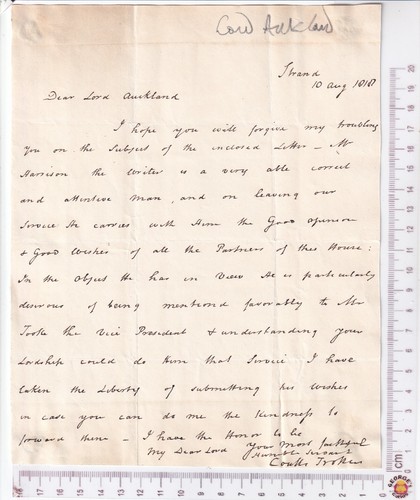 Lord Auckland
Strand
10 Aug 1818
Dear Lord Auckland
I hope you will forgive my troubling
you on the Subject of the inclosed Letter – Mr
Harrison the Writer is a very able correct
and attentive Man, and on leaving our
Service He carries with Him the Good opinion
& Good Wishes of all the Partners of this House:
In the Object He has in View He is particularly
desirous of being mentioned favorably to Mr
Tooke the Vice President & understanding your
Lordship could do him that Service I have
taken the Liberty of submitting his Wishes
in case you can do me the Kindness to
forward them – I have the Honor to be
My Dear Lord your most faithful
Humble Servant
Coutts Trotter